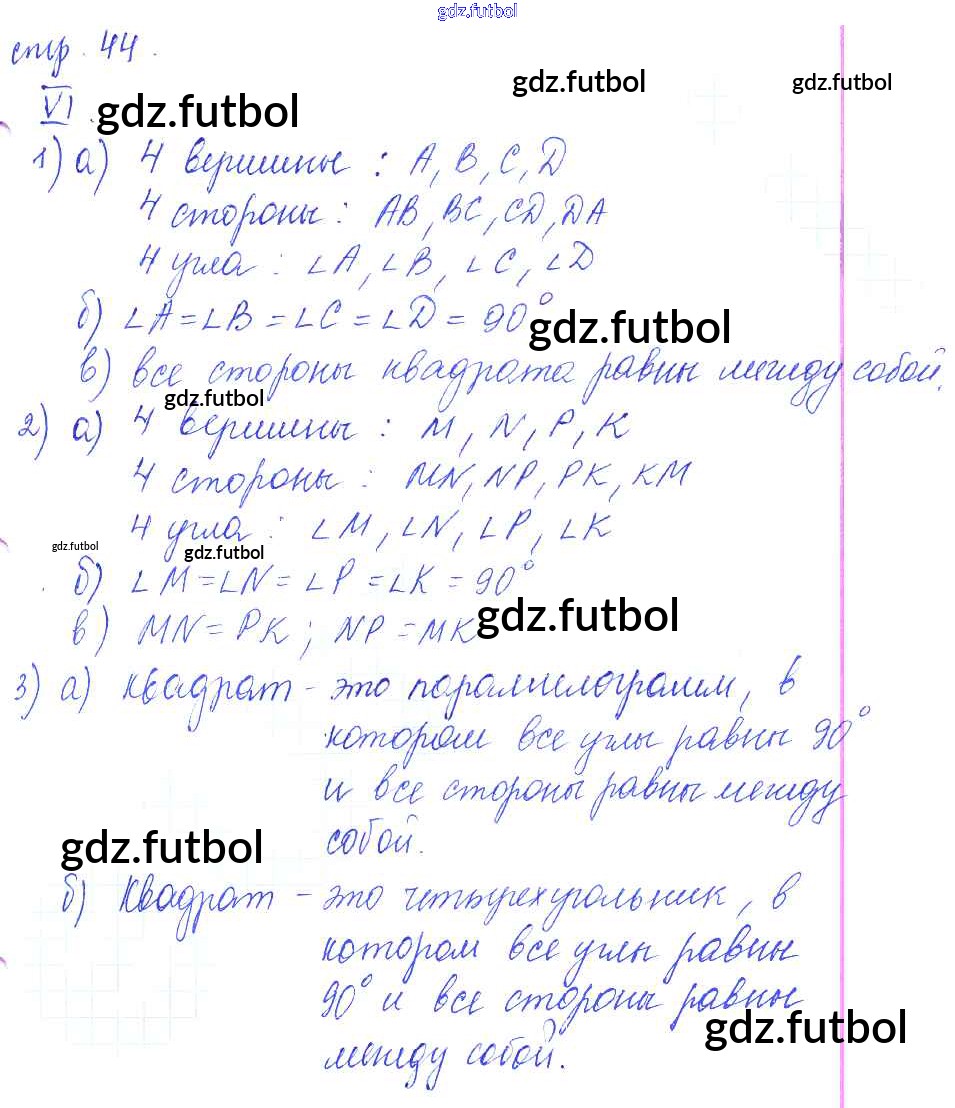 gdz.futbol
стр. 44.
gdz.futbol
gdz.futbol
VI. gdz.futbol
1) а) 4 вершины : A, B, C, D
4 стороны : AB, BC, CD, DA
4 угла : ∠A, ∠B, ∠C, ∠D
б) ∠A = ∠B = ∠C = ∠D = 90° gdz.futbol
в) все стороны квадрата равны между собой.
gdz.futbol
2) а) 4 вершины : M, N, P, K
4 стороны : MN, NP, PK, KM
4 угла : ∠M, ∠N, ∠P, ∠K
gdz.futbol
gdz.futbol
б) ∠M = ∠N = ∠P = ∠K = 90°
в) MN = PK ; NP = MK gdz.futbol
3) а) Квадрат - это параллелограмм, в
котором все углы равны 90°
и все стороны равны между
собой.
gdz.futbol
б) Квадрат - это четырехугольник, в
котором все углы равны
90° и все стороны равны
gdz.futbol
между собой.